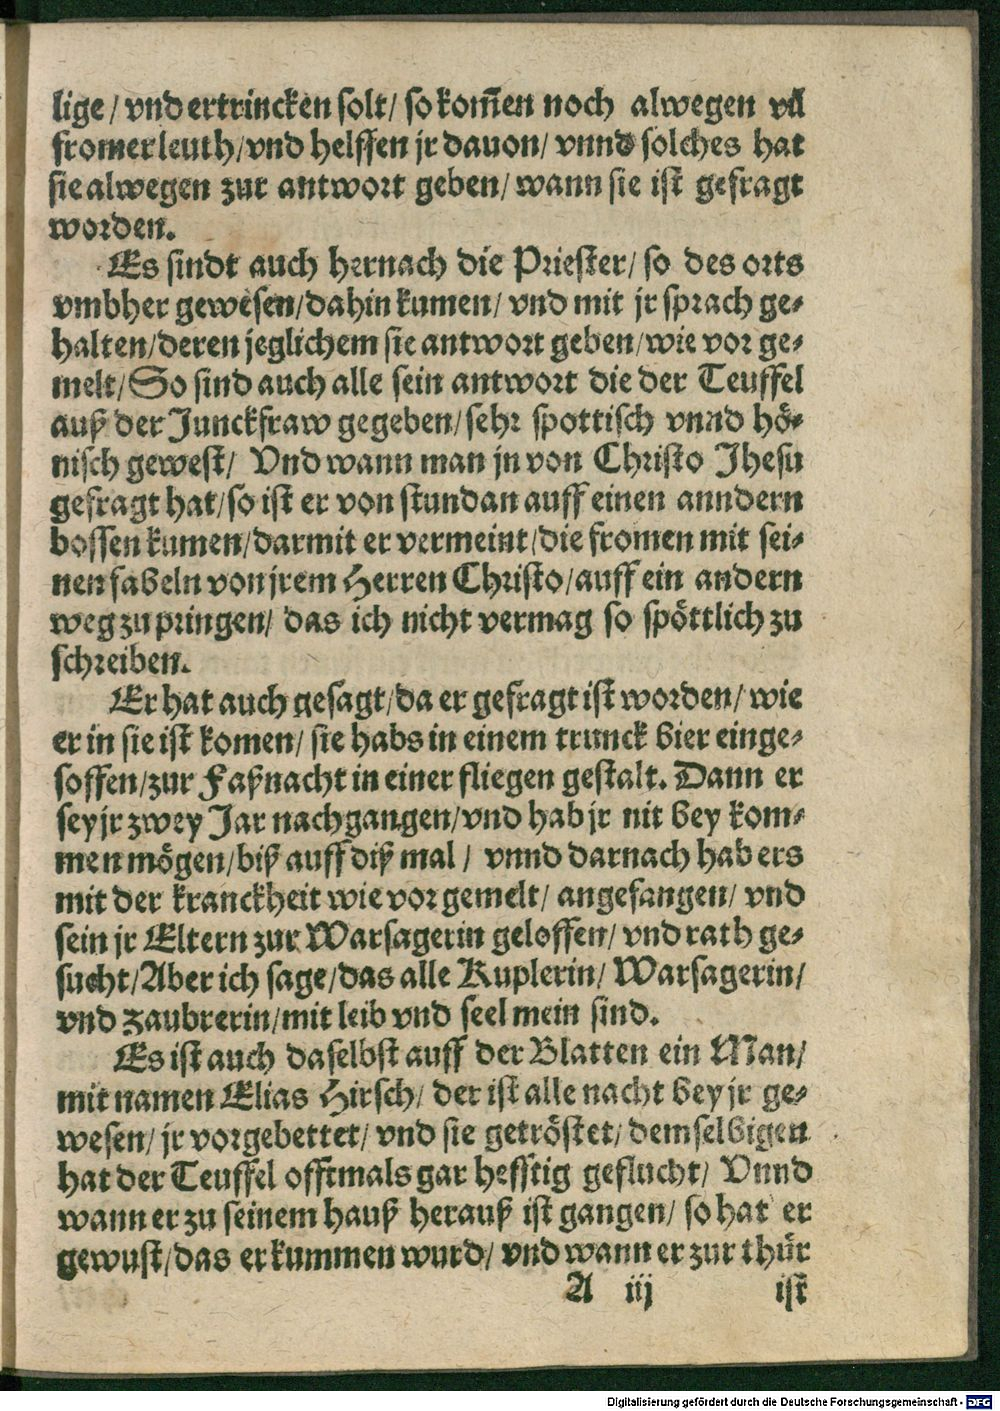 lige/ vnd ertrincken solt/ so kom̃en noch alwegen vil
fromer leuth/ vnd helffen jr dauon/ vnnd solches hat
sie alwegen zur antwort geben/ wann sie ist gefragt
worden.
Es sindt auch hernach die Priester/ so des orts
vmbher gewesen/ dahin kumen/ vnd mit jr sprach ge-
halten/ deren jeglichem sie antwort geben/ wie vor ge-
melt/ So sind auch alle sein antwort die der Teuffel
auß der Junckfraw gegeben/ sehr spöttisch vnnd hö-
nisch gewest/ Vnd wann man jn von Christo Jhesu
gefragt hat/ so ist er von stundan auff einen anndern
bossen kumen/ darmit er vermeint/ die fromen mit sei-
nen fabeln von jrem Herren Christo/ auff ein andern
weg zu pringen/ das ich nicht vermag so spöttlich zu
schreiben.
Er hat auch gesagt/ da er gefragt ist worden/ wie
er in sie ist komen/ sie habs in einem trunck bier einge-
soffen/ zur Faßnacht in einer fliegen gestalt. Dann er
sey jr zwey Jar nachgangen/ vnd hab jr nit bey kom-
men mögen/ biß auff diß mal/ vnnd darnach hab ers
mit der kranckheit wie vor gemelt/ angefangen/ vnd
sein jr Eltern zur Warsagerin geloffen/ vnd rath ge-
sucht/ Aber ich sage/ das alle Kuplerin/ Warsagerin/
vnd zaubrerin/ mit leib vnd seel mein sind.
Es ist auch daselbst auff der Blatten ein Man/
mit namen Elias Hirsch/ der ist alle nacht bey jr ge-
wesen/ jr vorgebettet/ vnd sie getröstet/ demselbigen
hat der Teuffel offtmals gar hefftig geflucht/ Vnnd
wann er zu seinem hauß herauß ist gangen/ so hat er
gewust/ das er kummen wurd/ vnd wann er zur thür
A iij ist
Digitalisierung gefördert durch die Deutsche Forschungsgemeinschaft - DFG